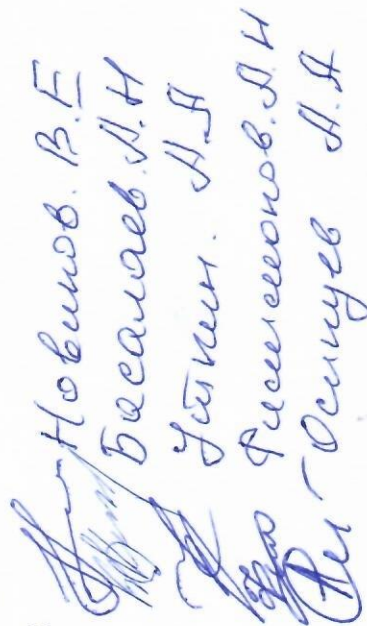 Новиков. В.Е
Басалаев. А.Н
Уткин. А.А
Филимонов. А.Н
Осипцев А.А